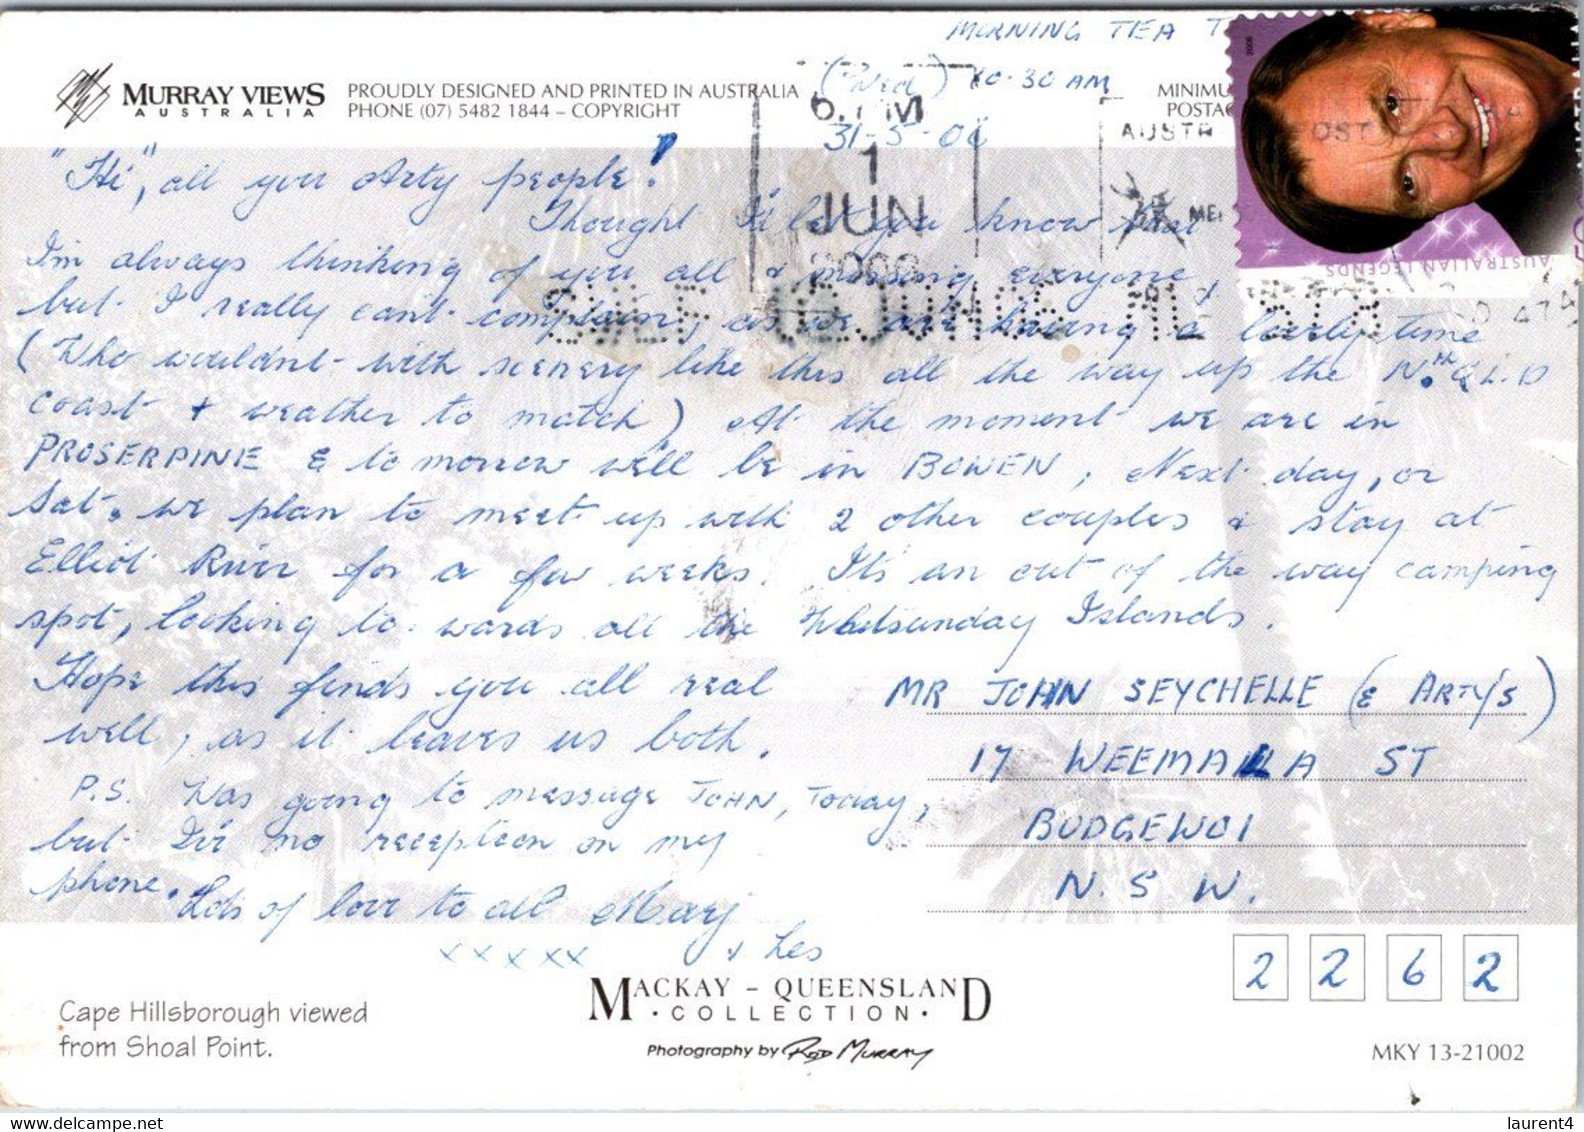 MORNING TEA T
(Wed) 10.30 AM
31-5-06
MURRAY VIEWS
AUSTRALIA
PROUDLY DESIGNED AND PRINTED IN AUSTRALIA
PHONE (07) 5482 1844 – COPYRIGHT
MINIMU
POSTAG
6. PM
1
JUN
2006
AUSTR
2006
AUSTRALIAN LEGENDS
"Hi", all you Arty people!
Thought I'd let you know that
I'm always thinking of you all & missing everyone,
but I really can't complain, as we are having a lovely time
(Who wouldn't with scenery like this all the way up the N.th QL.D
coast + weather to match) At the moment we are in
PROSERPINE & to morrow we'll be in BOWEN, Next day, or
Sat, we plan to meet up with 2 other couples & stay at
Elliot River for a few weeks. It's an out of the way camping
spot, looking to wards all the Whitsunday Islands.
Hope this finds you all real
well, as it leaves us both.
P.S. Was going to message JOHN, Today,
but I've no reception on my
phone. Lots of love to all Marj
xxxxx & Les
MR JOHN SEYCHELLE (& ARTY'S)
17 WEEMALA ST
BUDGEWOI
N.S.W.
2 2 6 2
Cape Hillsborough viewed
from Shoal Point.
MACKAY – QUEENSLAND
· COLLECTION ·
Photography by Rod Murray
MKY 13-21002
laurent4